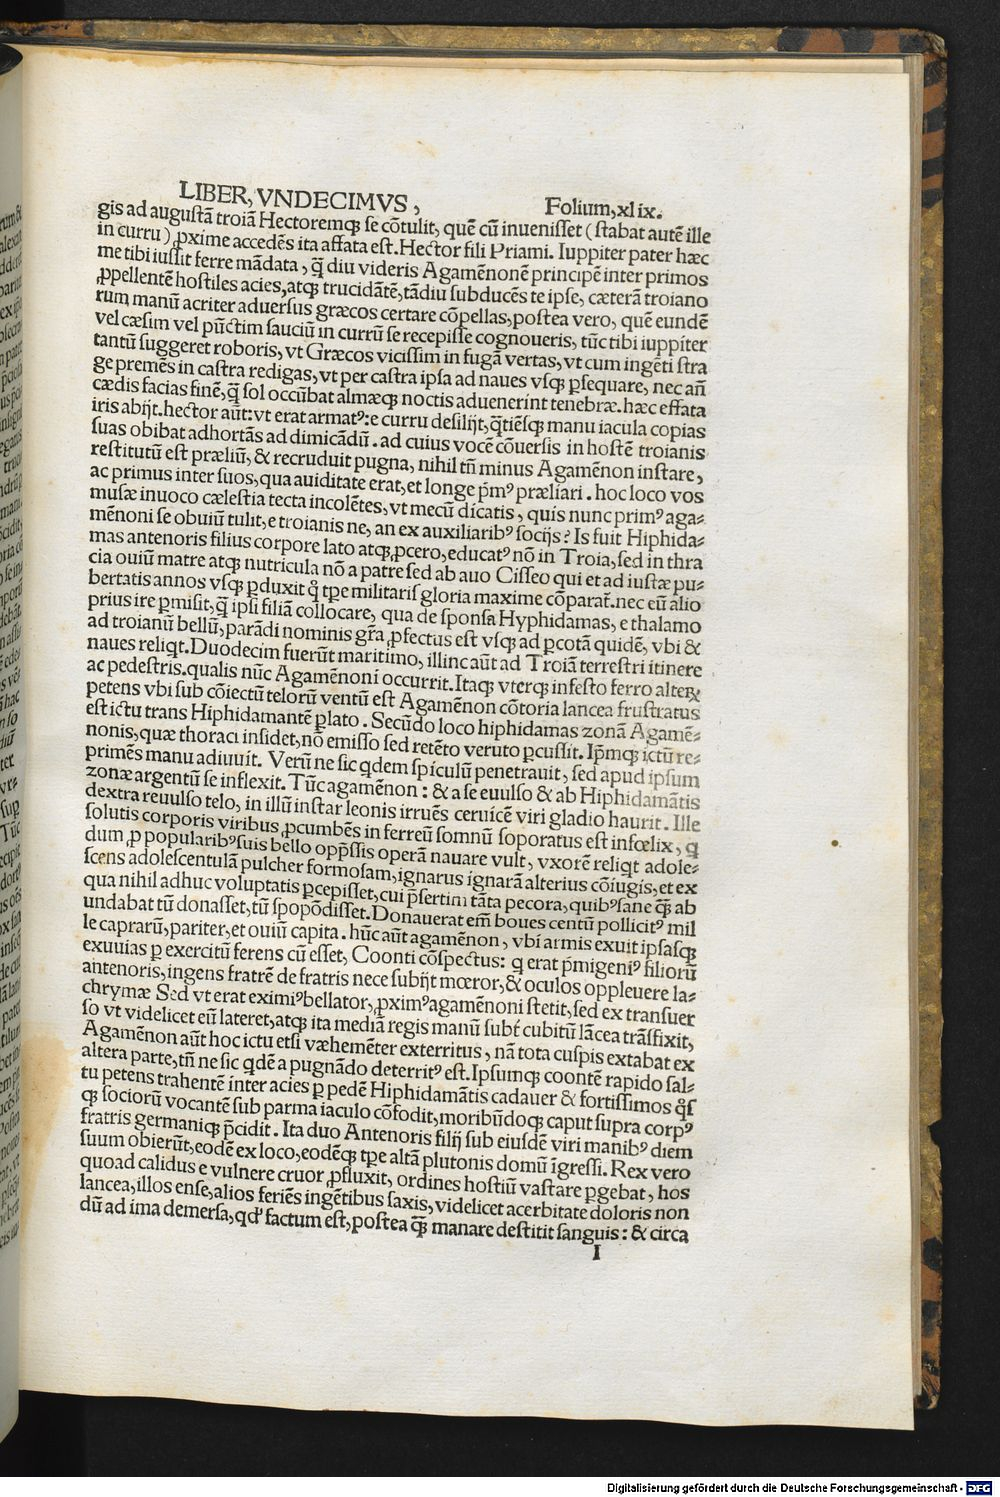 LIBER, VNDECIMVS,
Folium, xlix.
gis ad augustā troiā Hectoremqꝫ se cōtulit, quē cū inuenisset (stabat autē ille
in curru) ꝓxime accedēs ita affata est. Hector fili Priami. Iuppiter pater hæc
me tibi iussit ferre mādata, q̄ diu videris Agamēnonē principē inter primos
ꝓpellentē hostiles acies, atqꝫ trucidātē, tādiu subducēs te ipse, cæterā troiano
rum manū acriter aduersus græcos certare cōpellas, postea vero, quē eundē
vel cæsim vel pūctim sauciū in currū se recepisse cognoueris, tūc tibi iuppiter
tantū suggeret roboris, vt Græcos vicissim in fugā vertas, vt cum ingēti stra
ge premēs in castra redigas, vt per castra ipsa ad naues vsqꝫ ꝑsequare, nec añ
cædis facias finē, q̄ sol occūbat almæqꝫ noctis aduenerint tenebræ. hæc effata
iris abijt. hector aūt: vt erat armatꝰ: e curru desilijt, q̄tiēsqꝫ manu iacula copias
suas obibat adhortās ad dimicādū. ad cuius vocē cōuersis in hostē troianis
restitutū est præliū, & recruduit pugna, nihil tñ minus Agamēnon instare,
ac primus inter suos, qua auiditate erat, et longe p̄mꝰ præliari. hoc loco vos
musæ inuoco cælestia tecta incolētes, vt mecū dicatis, quis nunc primꝰ aga⸗
mēnoni se obuiū tulit, e troianis ne, an ex auxiliaribꝰ socijs? Is fuit Hiphida⸗
mas antenoris filius corpore lato atqꝫ ꝓcero, educatꝰ nō in Troia, sed in thra
cia ouiū matre atqꝫ nutricula nō a patre sed ab auo Cisseo qui et ad iustæ pu⸗
bertatis annos vsqꝫ ꝑduxit q̄ tꝑe militaris gloria maxime cōparat̄. nec eū alio
prius ire ꝑmisit, q̄ ipsi filiā collocare, qua de sponsa Hyphidamas, e thalamo
ad troianū bellū, parādi nominis gr̄a ꝓfectus est vsqꝫ ad ꝑcotā quidē, vbi &
naues reliqt. Duodecim fuerūt maritimo, illinc aūt ad Troiā terrestri itinere
ac pedestris. qualis nūc Agamēnoni occurrit. Itaqꝫ vterqꝫ infesto ferro alterꝝ
petens vbi sub cōiectū telorū ventū est Agamēnon cōtoria lancea frustratus
est ictu trans Hiphidamantē ꝑlato. Secūdo loco hiphidamas zonā Agamē⸗
nonis, quæ thoraci insidet, nō emisso sed retēto veruto ꝑcussit. Ip̄mqꝫ ictū re⸗
primēs manu adiuuit. Verū ne sic qdem spiculū penetrauit, sed apud ipsum
zonæ argentū se inflexit. Tūc agamēnon: & a se euulso & ab Hiphidamātis
dextra reuulso telo, in illū instar leonis irruēs ceruicē viri gladio haurit. Ille
solutis corporis viribus ꝓcumbēs in ferreū somnū soporatus est infœlix, q
dum ꝓ popularibꝰ suis bello opp̄ssis operā nauare vult, vxorē reliqt adole⸗
scens adolescentulā pulcher formosam, ignarus ignarā alterius cōiugis, et ex
qua nihil adhuc voluptatis ꝑcepisset, cui p̄sertim tāta pecora, quibꝰ sane q̄ꝫ ab
undabat tū donasset, tū spopōdisset. Donauerat em̄ boues centū pollicitꝰ mil
le caprarū, pariter, et ouiū capita. hūc aūt agamēnon, vbi armis exuit ipsasqꝫ
exuuias ꝑ exercitū ferens cū esset, Coonti cōspectus: q erat p̄migeniꝰ filiorū
antenoris, ingens fratrē de fratris nece subijt mœror, & oculos oppleuere la⸗
chrymæ Sed vt erat eximiꝰ bellator, ꝓximꝰ agamēnoni stetit, sed ex transuer
so vt videlicet eū lateret, atqꝫ ita mediā regis manū subt̄ cubitū lācea trāsfixit,
Agamēnon aūt hoc ictu etsi væhemēter exterritus, nā tota cuspis extabat ex
altera parte, tñ ne sic qdē a pugnādo deterritꝰ est. Ipsumqꝫ coontē rapido sal⸗
tu petens trahentē inter acies ꝑ pedē Hiphidamātis cadauer & fortissimos q̄s
qꝫ sociorū vocantē sub parma iaculo cōfodit, moribūdoqꝫ caput supra corpꝰ
fratris germaniqꝫ p̄cidit. Ita duo Antenoris filij sub eiusdē viri manibꝰ diem
suum obierūt, eodē ex loco, eodēqꝫ tꝑe altā plutonis domū īgressi. Rex vero
quoad calidus e vulnere cruor ꝓfluxit, ordines hostiū vastare ꝑgebat, hos
lancea, illos ense, alios feriēs ingētibus saxis, videlicet acerbitate doloris non
dū ad ima demersa, qd' factum est, postea q̄ꝫ manare destitit sanguis: & circa
I
Digitalisierung gefördert durch die Deutsche Forschungsgemeinschaft - DFG